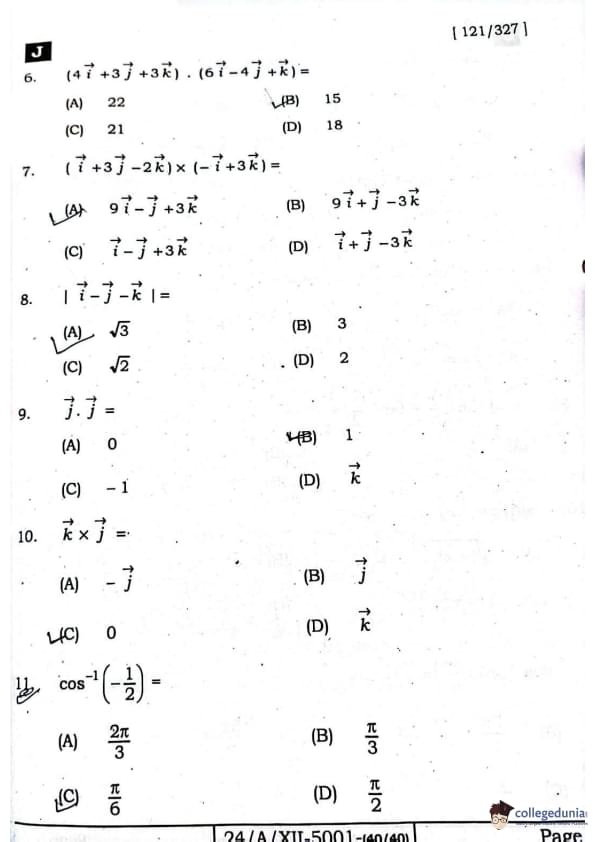 [ 121/327 ]
J
6. (4 i⃗ +3 j⃗ +3 k⃗) . (6 i⃗ −4 j⃗ + k⃗) =
(A) 22 (B) 15
(C) 21 (D) 18
7. ( i⃗ +3 j⃗ −2 k⃗) × (− i⃗ +3 k⃗) =
(A) 9 i⃗ − j⃗ +3 k⃗ (B) 9 i⃗ + j⃗ −3 k⃗
(C) i⃗ − j⃗ +3 k⃗ (D) i⃗ + j⃗ −3 k⃗
8. | i⃗ − j⃗ − k⃗ | =
(A) √3 (B) 3
(C) √2 (D) 2
9. j⃗ . j⃗ =
(A) 0 (B) 1
(C) −1 (D) k⃗
10. k⃗ × j⃗ =
(A) − j⃗ (B) j⃗
(C) 0 (D) k⃗
11. cos⁻¹(−1/2) =
(A) 2π/3 (B) π/3
(C) π/6 (D) π/2
collegedunia
24/A/XII-5001-(40/40) Page